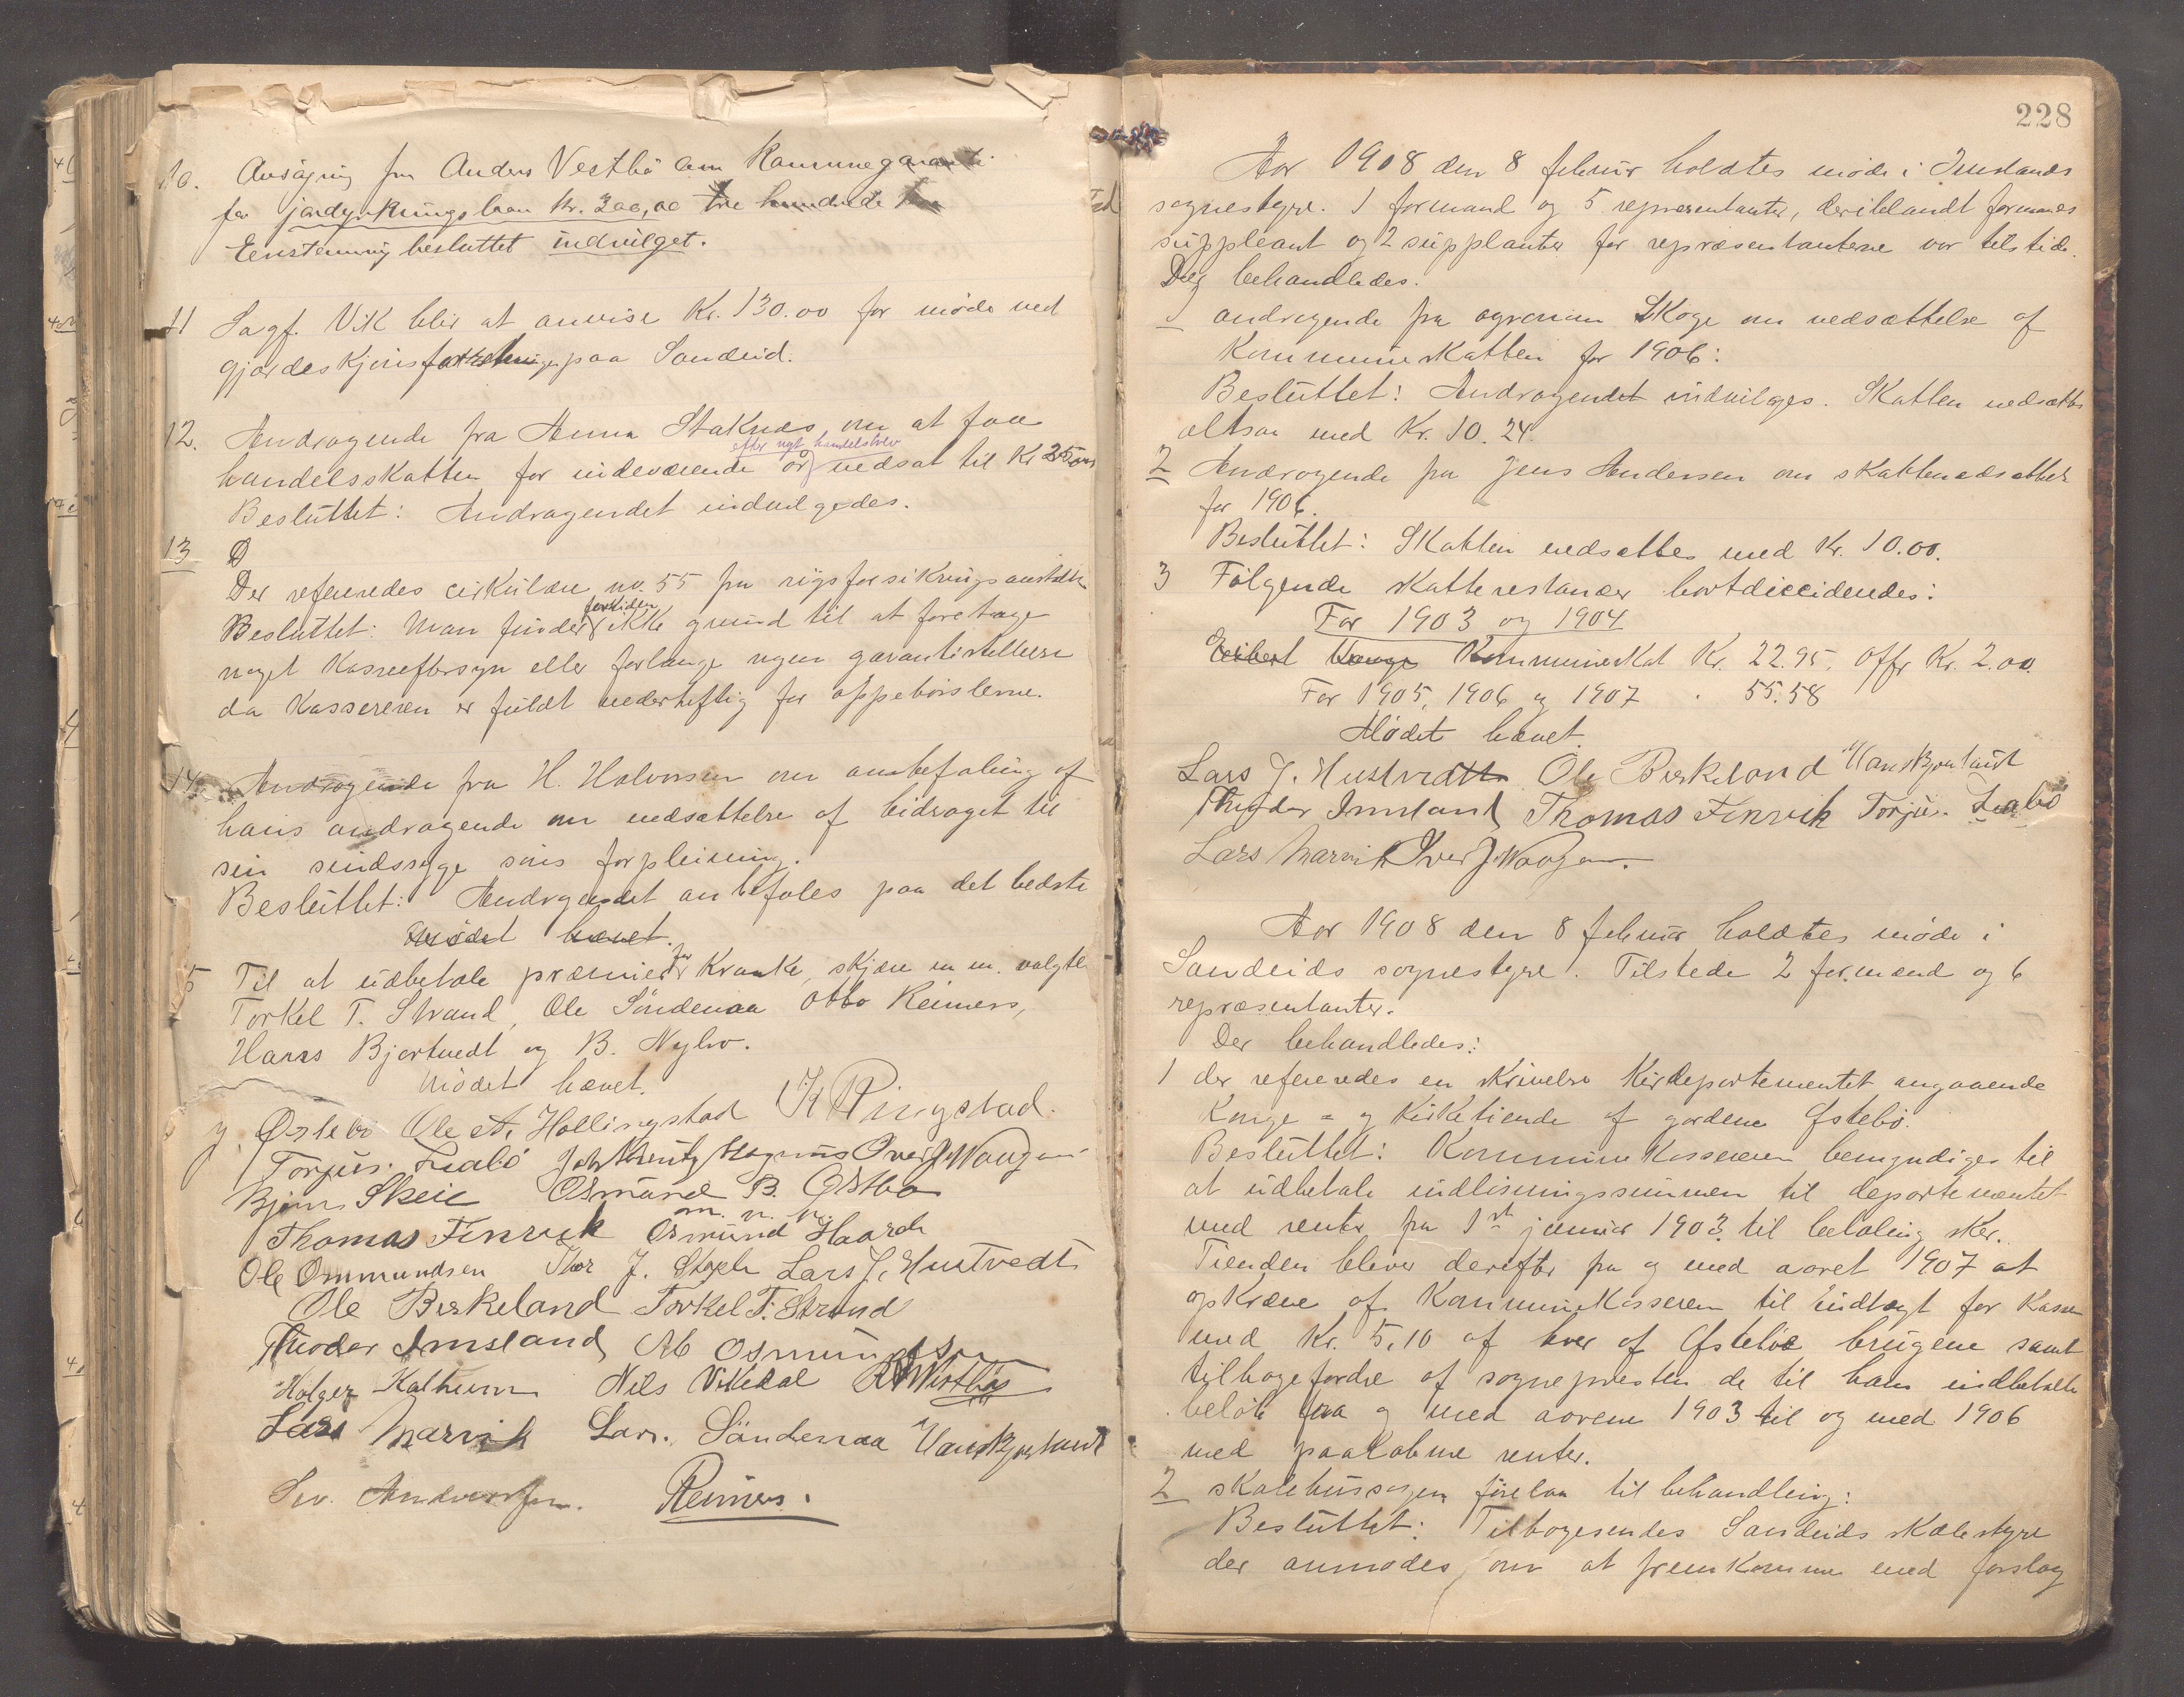 10. Ansøgning fra Anders Vestbø om Kommunegaranti
for jorddyrkningslaan Kr. 300,00 tre hundrede
Eenstemmig besluttet indvilget.
11 Sagf. Vik blir at anvise Kr. 130.00 for møde ved
gjærdeskjønsforretninger paa Sandeid.
12. Andragende fra Anna Staknes om at faa
efter nyt handelsbrev
handelsskatten for indeværende år nedsat til Kr 25.00
Besluttet: Andragendet indvilgedes.
13 D
Der refereredes cirkulære no. 55 fra rigsforsikringsanstalten
fortiden
Besluttet: Man finder ikke grund til at foretage
noget Kasseeftersyn eller forlange nogen garantistillelse
da Kassereren er fuldt vederheftig for oppebørslerne.
14. Andragende fra H. Halvorsen om anbefaling af
hans andragende om nedsættelse af bidraget til
sin sindssyge søns forpleining.
Besluttet: Andragendet anbefales paa det bedste
Mødet hævet.
15 Til at udbetale præmier for Kraake, skjære m m. valgte
Torkel T. Strand, Ole Søndenaa Otto Reimers,
Hans Bjortvedt og B. Nybro.
Mødet hævet.
Østebø Ole A. Hollingstad K Ringstad.
Torjus. Leabø Joh Kreutz Magnus Iver J Waagen
Bjørn Skeie Osmund B. Østbø
m. n. n.
Thomas Finvik Osmund Haarde
Ole Ommundsen Thor J. Stople Lars J. Hustvedt
Ole Birkeland Torkel T. Strand
Theodor Imsland, M Osmundsen
Holger Kathum Nils Vikedal R Westbø
Lars Narvik Lars. Søndenaa Hans Bjortvedt
Sev. Andersen. Reimers.
228
Aar 1908 den 8 februar holdtes møde i Imslands
sognestyre. 1 formand og 5 repræsentanter, deriblandt formands
suppleant og 2 supplanter for repræsentanterne var tilstede.
Der behandledes.
1 andragende fra agronom Skoge om nedsættelse af
Kommuneskatten for 1906:
Besluttet: Andragendet indvilges. Skatten nedsættes
altsaa med Kr. 10.24.
2 Andragende fra Jens Andersen om skattenedsættelse
for 1906.
Besluttet: Skatten nedsættes med Kr. 10.00.
3 Følgende skatterestancer bortdecideredes:
For 1903 og 1904
Kommuneskat Kr. 22.95. Offr Kr. 2.00
For 1905, 1906 og 1907 . 55.58
Mødet hævet
Lars J. Hustvedt Ole Birkeland Hans Bjortvedt
Theodor Imsland, Thomas Finvik Torjus. Leabø
Lars Narvik Iver J Waagen.
Aar 1908 den 8 februar holdtes møde i
Sandeids sognestyre. Tilstede 2 formænd og 6
repræsentanter.
Der behandledes:
1 der refereredes en skrivelse Kirdepartementet angaaende
Konge = og Kirketiende af gardene Østebø.
Besluttet: Kommunekassereren bemyndiges til
at udbetale indløsningssummen til departementet
med renter fra 1st januar 1903 til betaling sker.
Tienden bliver derefter fra og med aaret 1907 at
opkræve af Kommunekassereren til indtægt for Kassen
med Kr. 5.10 af hver af Østebø brugene samt
tilbagefordre af sognepresten de til ham indbetalte
beløb fra og med aarene 1903 til og med 1906
med paaløbne renter.
2 skolehussagen forelaa til behandling:
Besluttet: Tilbagesendes Sandeids skolestyre
der anmodes om at fremkomme med forslag